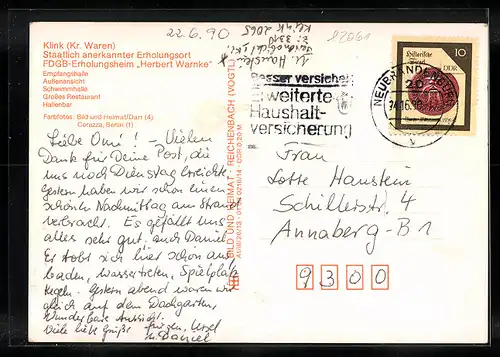 22.6.90
Klink (Kr. Waren)
Staatlich anerkannter Erholungsort
FDGB-Erholungsheim „Herbert Warnke"
Empfangshalle
Außenansicht
Schwimmhalle
Großes Restaurant
Hallenbar
Farbfotos: Bild und Heimat/Darr (4)
Corazza, Serrat (1)
Liebe Omi! – Vielen
Dank für Deine Post, die
uns noch Dienstag erreichte.
Gestern haben wir schon einen
schönen Nachmittag am Strand
verbracht. Es gefällt uns
alles sehr gut, auch Daniel.
Er tobt sich hier schon aus
baden, wassertreten, Spielplatz
Kegeln. Gestern abend waren wir
gleich auf dem Dachgarten,
Wunderbare Aussicht.
Viele liebe Grüße
u. Daniel
BILD UND HEIMAT · REICHENBACH (VOGTL)
Klink 2065
Besser versichert
Erweiterte
Haushalt-
versicherung
NEUBRANDENBURG
Historische
10
DDR
Frau
Lotte Haustein
Schillerstr. 4
Annaberg-B 1
9300